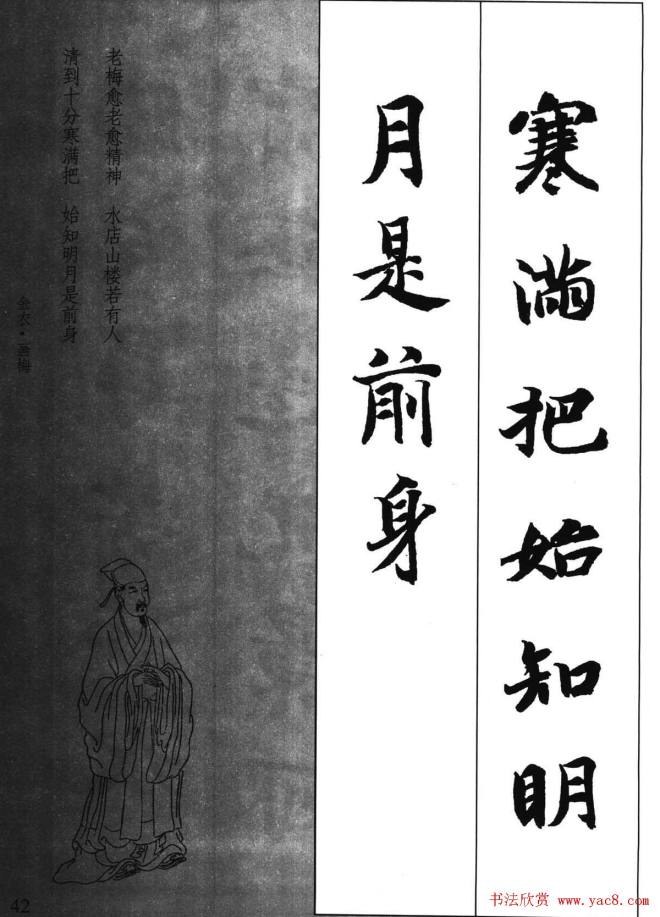 寒满把始知明
月是前身
老梅愈老愈精神　水店山楼若有人
清到十分寒满把　始知明月是前身
金农·画梅
42
书法欣赏 www.yac8.com